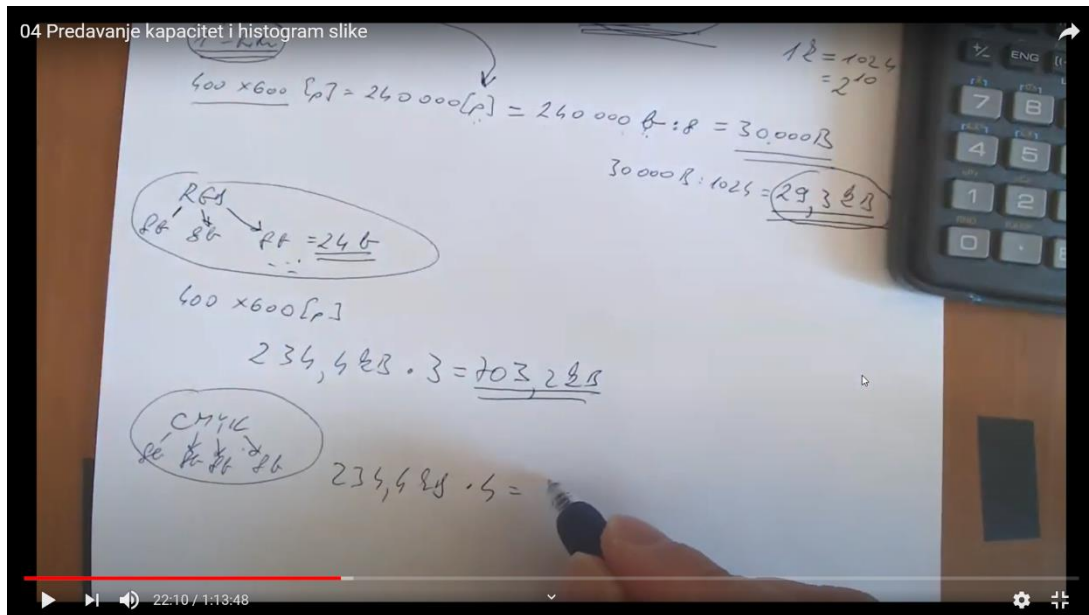 04 Predavanje kapacitet i histogram slike
1k = 1024
= 2^10
400 x 600 [p] = 240 000 [p] = 240 000 b : 8 = 30.000B
30 000 B : 1024 = 29,3 kB
RGB
8b 8b 8b = 24 b
400 x 600 [p]
234,4 kB · 3 = 703,2 kB
CMYK
8b 8b 8b 8b
234,4 kB · 4 =
+/- ENG
7 8
4 5
1 2
0 ·
22:10 / 1:13:48